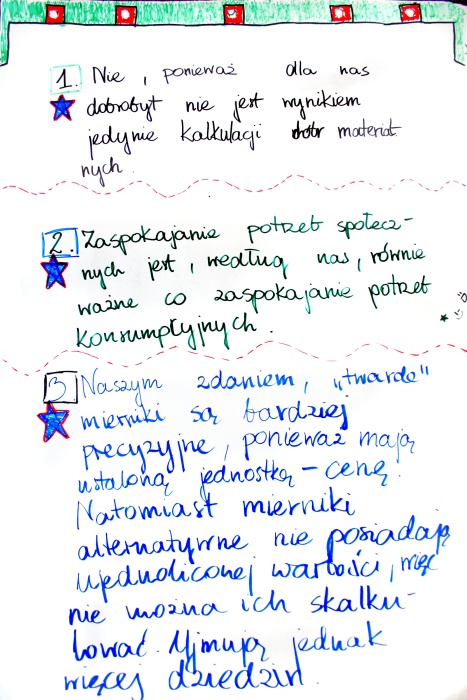 1. Nie, ponieważ dla nas
dobrobyt nie jest wynikiem
jedynie kalkulacji dóbr material-
nych.
2. Zaspokajanie potrzeb społecz-
nych jest, według nas, równie
ważne co zaspokajanie potrzeb
konsumpcyjnych.
3 Naszym zdaniem, "twarde"
mierniki są bardziej
precyzyjne, ponieważ mają
ustaloną jednostkę - cenę.
Natomiast mierniki
alternatywne nie posiadają
ujednoliconej wartości, więc
nie można ich skalku-
lować. Ujmują jednak
więcej dziedzin.